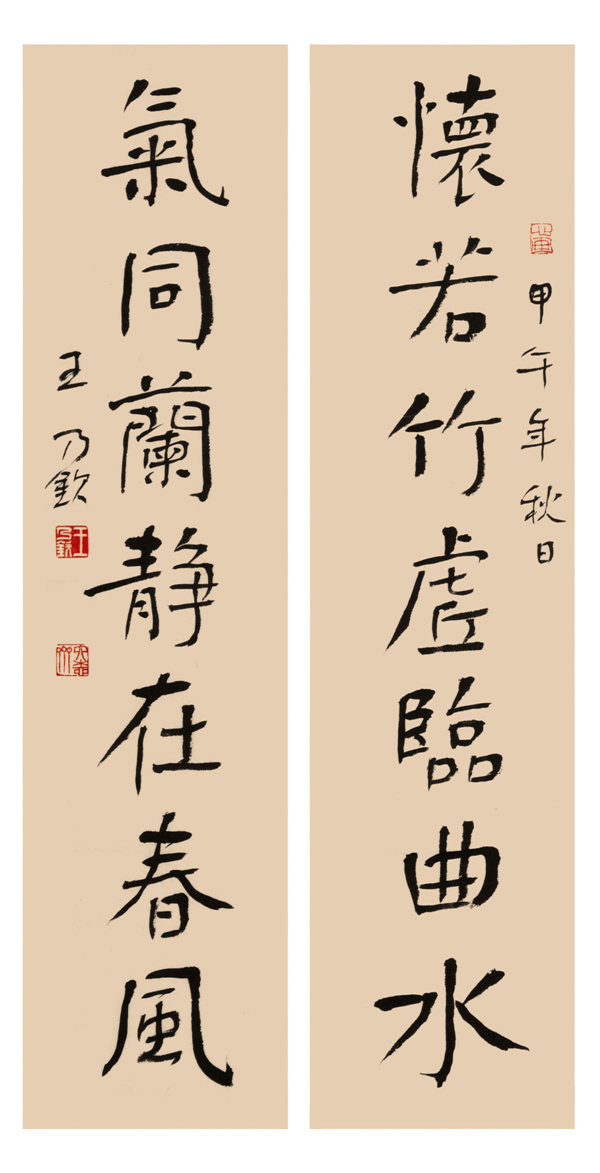 甲午年秋日
懷若竹虛臨曲水
氣同蘭靜在春風
王乃欽
王乃欽